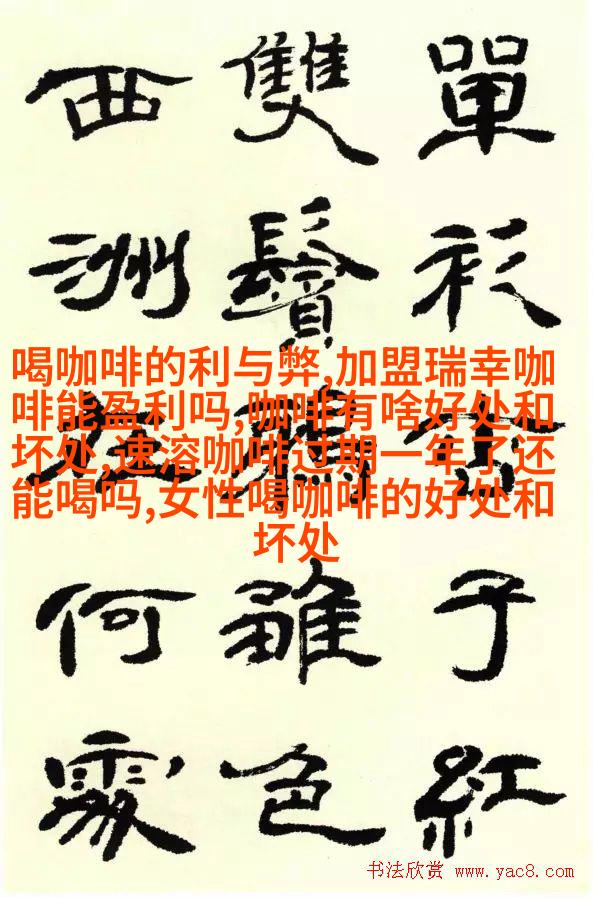 單衫杏子紅
雙鬢鴉雛色
西洲在何處
喝咖啡的利与弊,加盟瑞幸咖
啡能盈利吗,咖啡有啥好处和
坏处,速溶咖啡过期一年了还
能喝吗,女性喝咖啡的好处和
坏处
书法欣赏 www.yac8.com